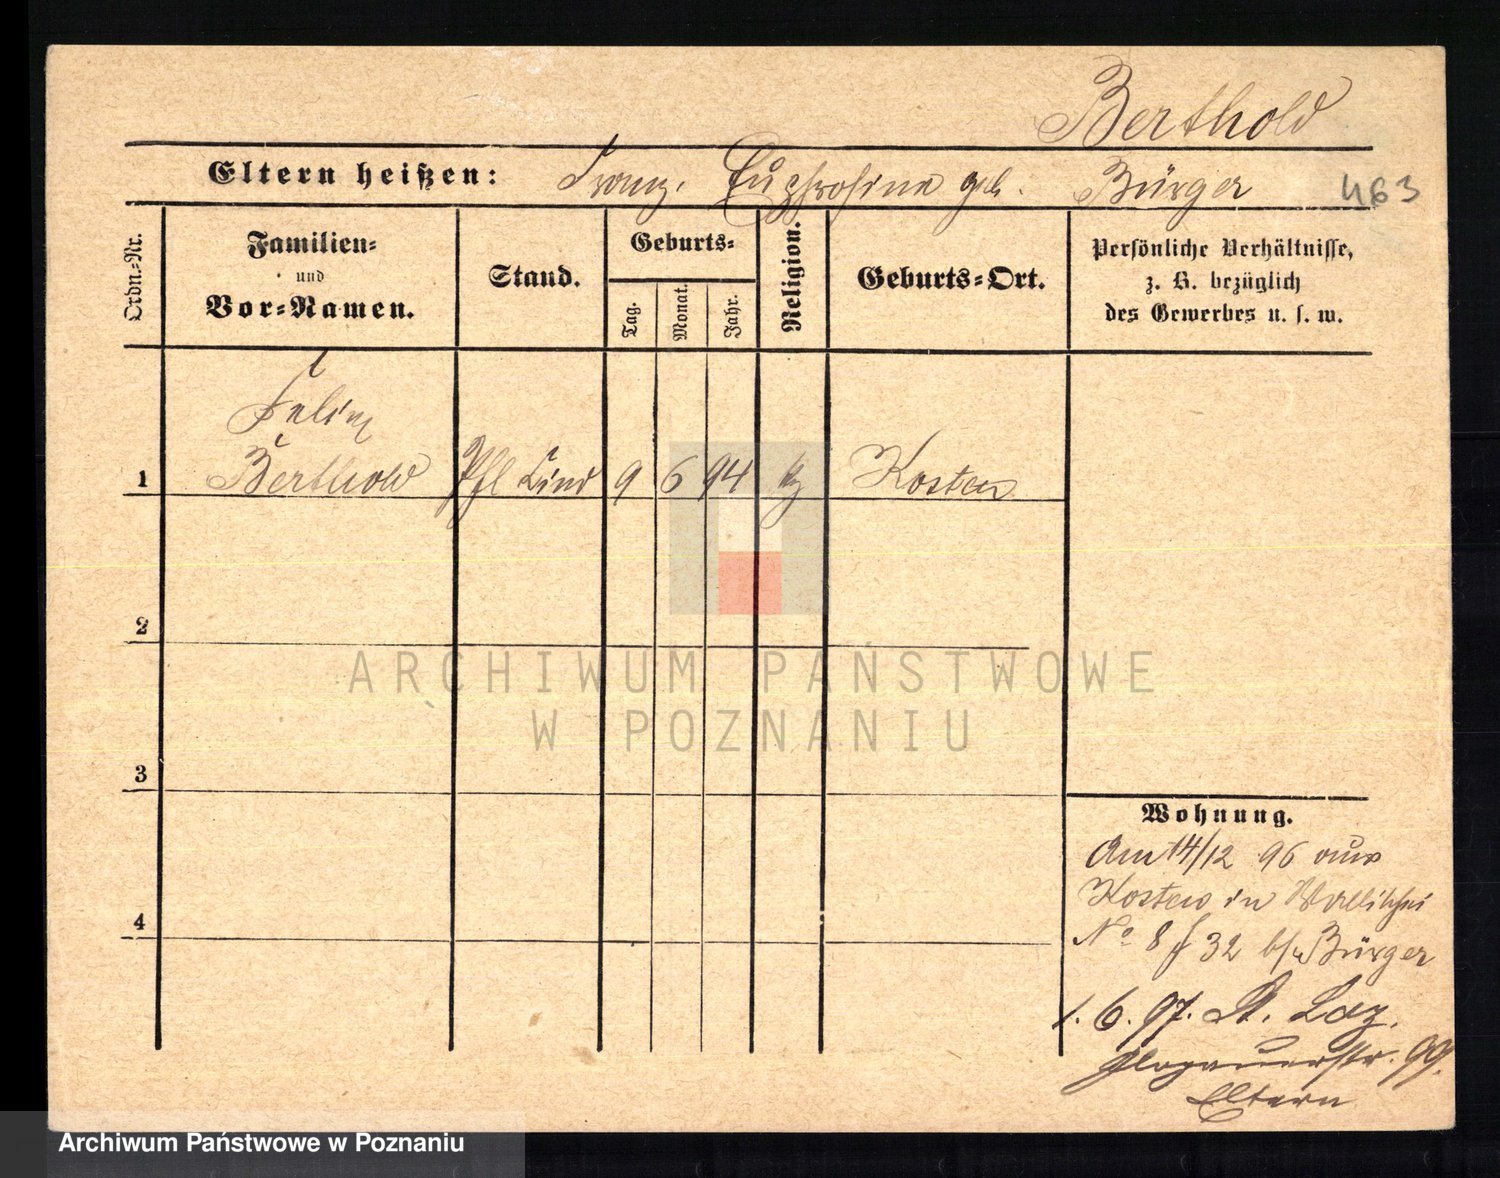 Berthold
Eltern heißen: Franz, Euphrosine geb. Bürger 463
Ordn.-Nr.
Familien-
und
Vor-Namen.
Stand.
Geburts-
Tag.
Monat.
Jahr.
Religion.
Geburts-Ort.
Persönliche Verhältnisse,
z. B. bezüglich
des Gewerbes u. s. w.
Felix
1 Berthold Pfl Kind 9 6 94 Kosten
2
3
4
Wohnung.
Am 14/12 96 aus
Kosten in Wallischei
No 8 f 32 b/ Bürger
1. 6. 97. St. Laz.
Glogauerstr. 99.
Eltern
ARCHIWUM PAŃSTWOWE
W POZNANIU
Archiwum Państwowe w Poznaniu